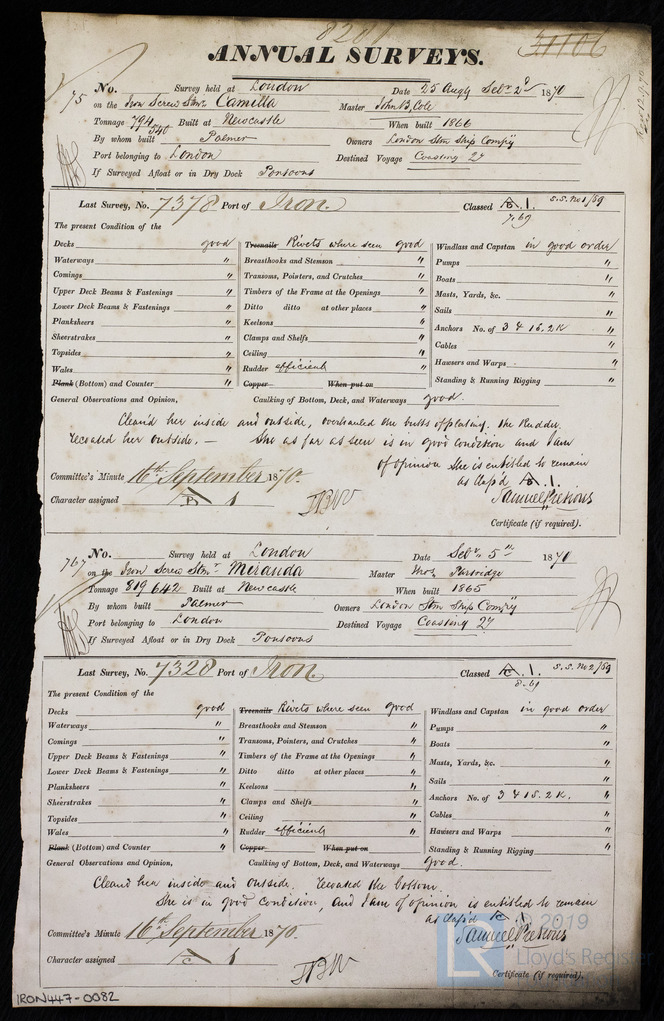 8281
31106
ANNUAL SURVEYS.
75 No. Survey held at London Date 25 Aug Sepr 2d 1870
on the Iron Screw Stmr Camilla Master John B. Cole
Tonnage 794 540 Built at Newcastle When built 1866
By whom built Palmer Owners London Stm Ship Compy
Port belonging to London Destined Voyage Coasting 27
If Surveyed Afloat or in Dry Dock Pontoons
Last Survey, No. 7378 Port of Iron. Classed A. 1. S.S. No 1/69
7.69
The present Condition of the
Decks good Treenails Rivets where seen good Windlass and Capstan in good order
Waterways " Breasthooks and Stemson " Pumps "
Comings " Transoms, Pointers, and Crutches " Boats "
Upper Deck Beams & Fastenings " Timbers of the Frame at the Openings " Masts, Yards, &c. "
Lower Deck Beams & Fastenings " Ditto ditto at other places " Sails "
Planksheers " Keelsons " Anchors No. of 3 & 1 S. 2 K "
Sheerstrakes " Clamps and Shelfs " Cables "
Topsides " Ceiling " Hawsers and Warps "
Wales " Rudder efficient Standing & Running Rigging "
Plank (Bottom) and Counter " Copper When put on
General Observations and Opinion, Caulking of Bottom, Deck, and Waterways good.
Clean'd her inside and outside, overhauled the butts of plating, the Rudder.
Recoated her outside. — She as far as seen is in good condition and I am
of opinion She is entitled to remain
as Clas'd A. 1.
Committee's Minute 16th September 1870.
Character assigned A B 1
Certificate (if required).
767 No. Survey held at London Date Sepr 5th 1870
on the Iron Screw Stmr Miranda Master Thos Partridge
Tonnage 819 642 Built at Newcastle When built 1865
By whom built Palmer Owners London Stm Ship Compy
Port belonging to London Destined Voyage Coasting 27
If Surveyed Afloat or in Dry Dock Pontoons
Last Survey, No. 7328 Port of Iron. Classed A. 1. S.S. No 2/69
8.69
The present Condition of the
Decks good Treenails Rivets where seen good Windlass and Capstan in good order
Waterways " Breasthooks and Stemson " Pumps "
Comings " Transoms, Pointers, and Crutches " Boats "
Upper Deck Beams & Fastenings " Timbers of the Frame at the Openings " Masts, Yards, &c. "
Lower Deck Beams & Fastenings " Ditto ditto at other places " Sails "
Planksheers " Keelsons " Anchors No. of 3 & 1 S. 2 K. "
Sheerstrakes " Clamps and Shelfs " Cables "
Topsides " Ceiling " Hawsers and Warps "
Wales " Rudder efficient Standing & Running Rigging "
Plank (Bottom) and Counter " Copper When put on
General Observations and Opinion, Caulking of Bottom, Deck, and Waterways good
Cleand her inside and outside, Recoated the bottom.
She is in good condition, and I am of opinion is entitled to remain
as Clas'd A 1.
Committee's Minute 16th September 1870.
Character assigned A C 1
Certificate (if required).
© 2019
LR Lloyd's Register
IRON447-0082